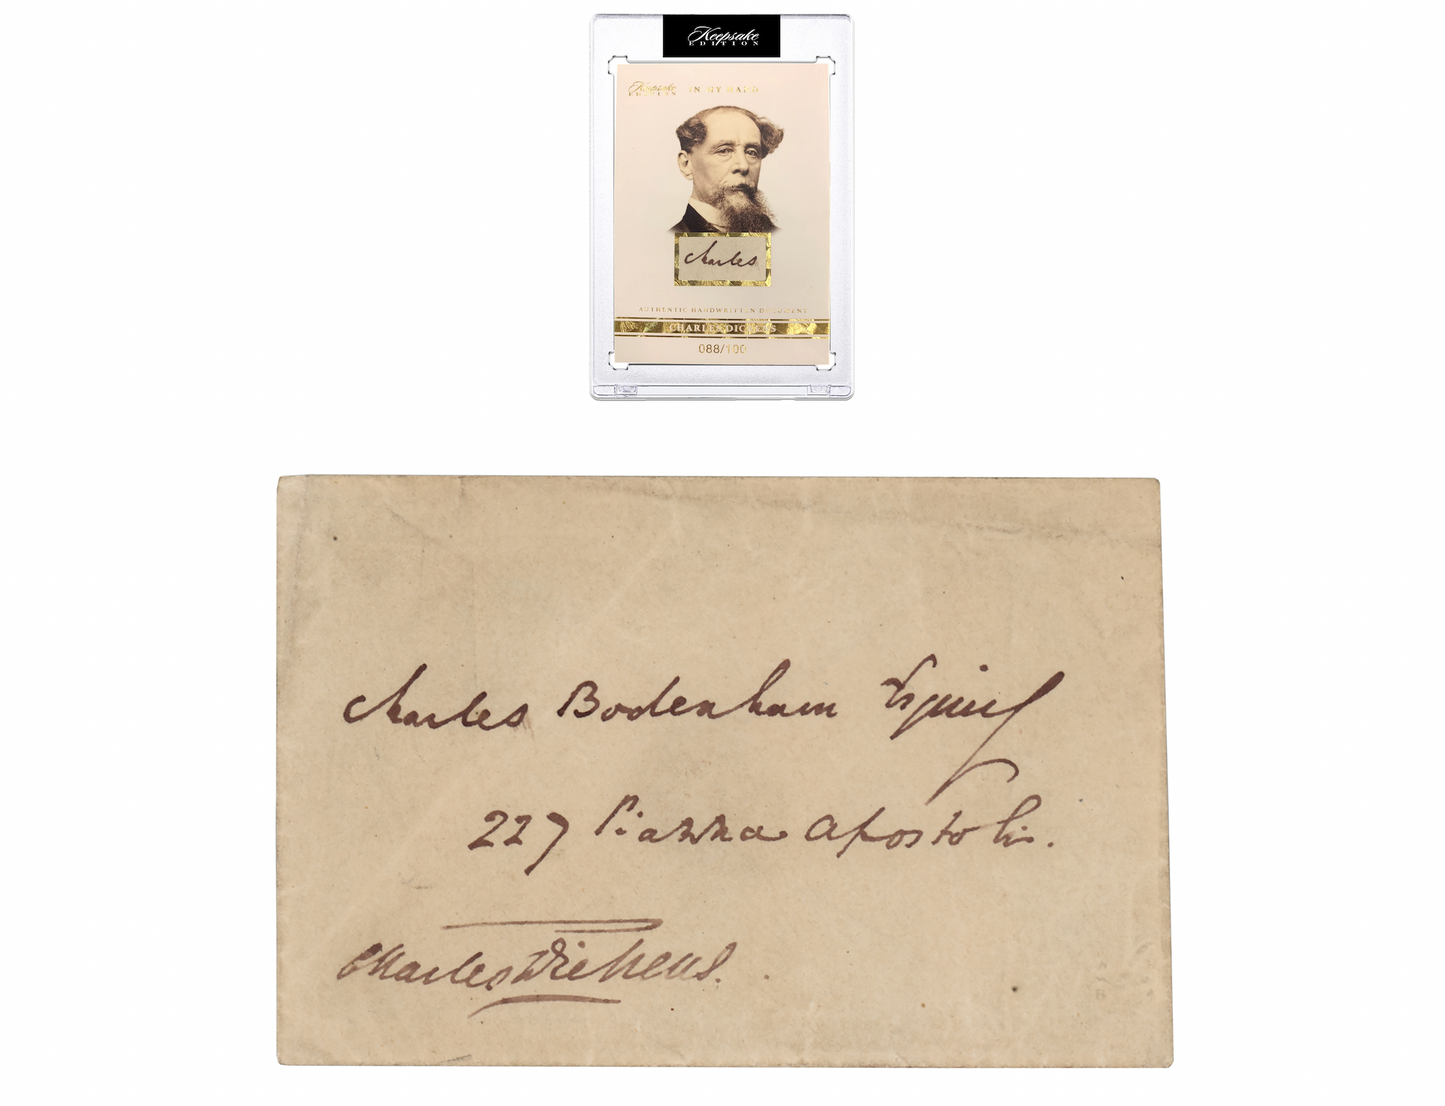 Keepsake
EDITION
Keepsake
EDITION
IN MY HAND
Charles
AUTHENTIC HANDWRITTEN DOCUMENT
CHARLES DICKENS
088/100
Charles Bodenham Esquire
227 Piazza Apostoli.
Charles Dickens.